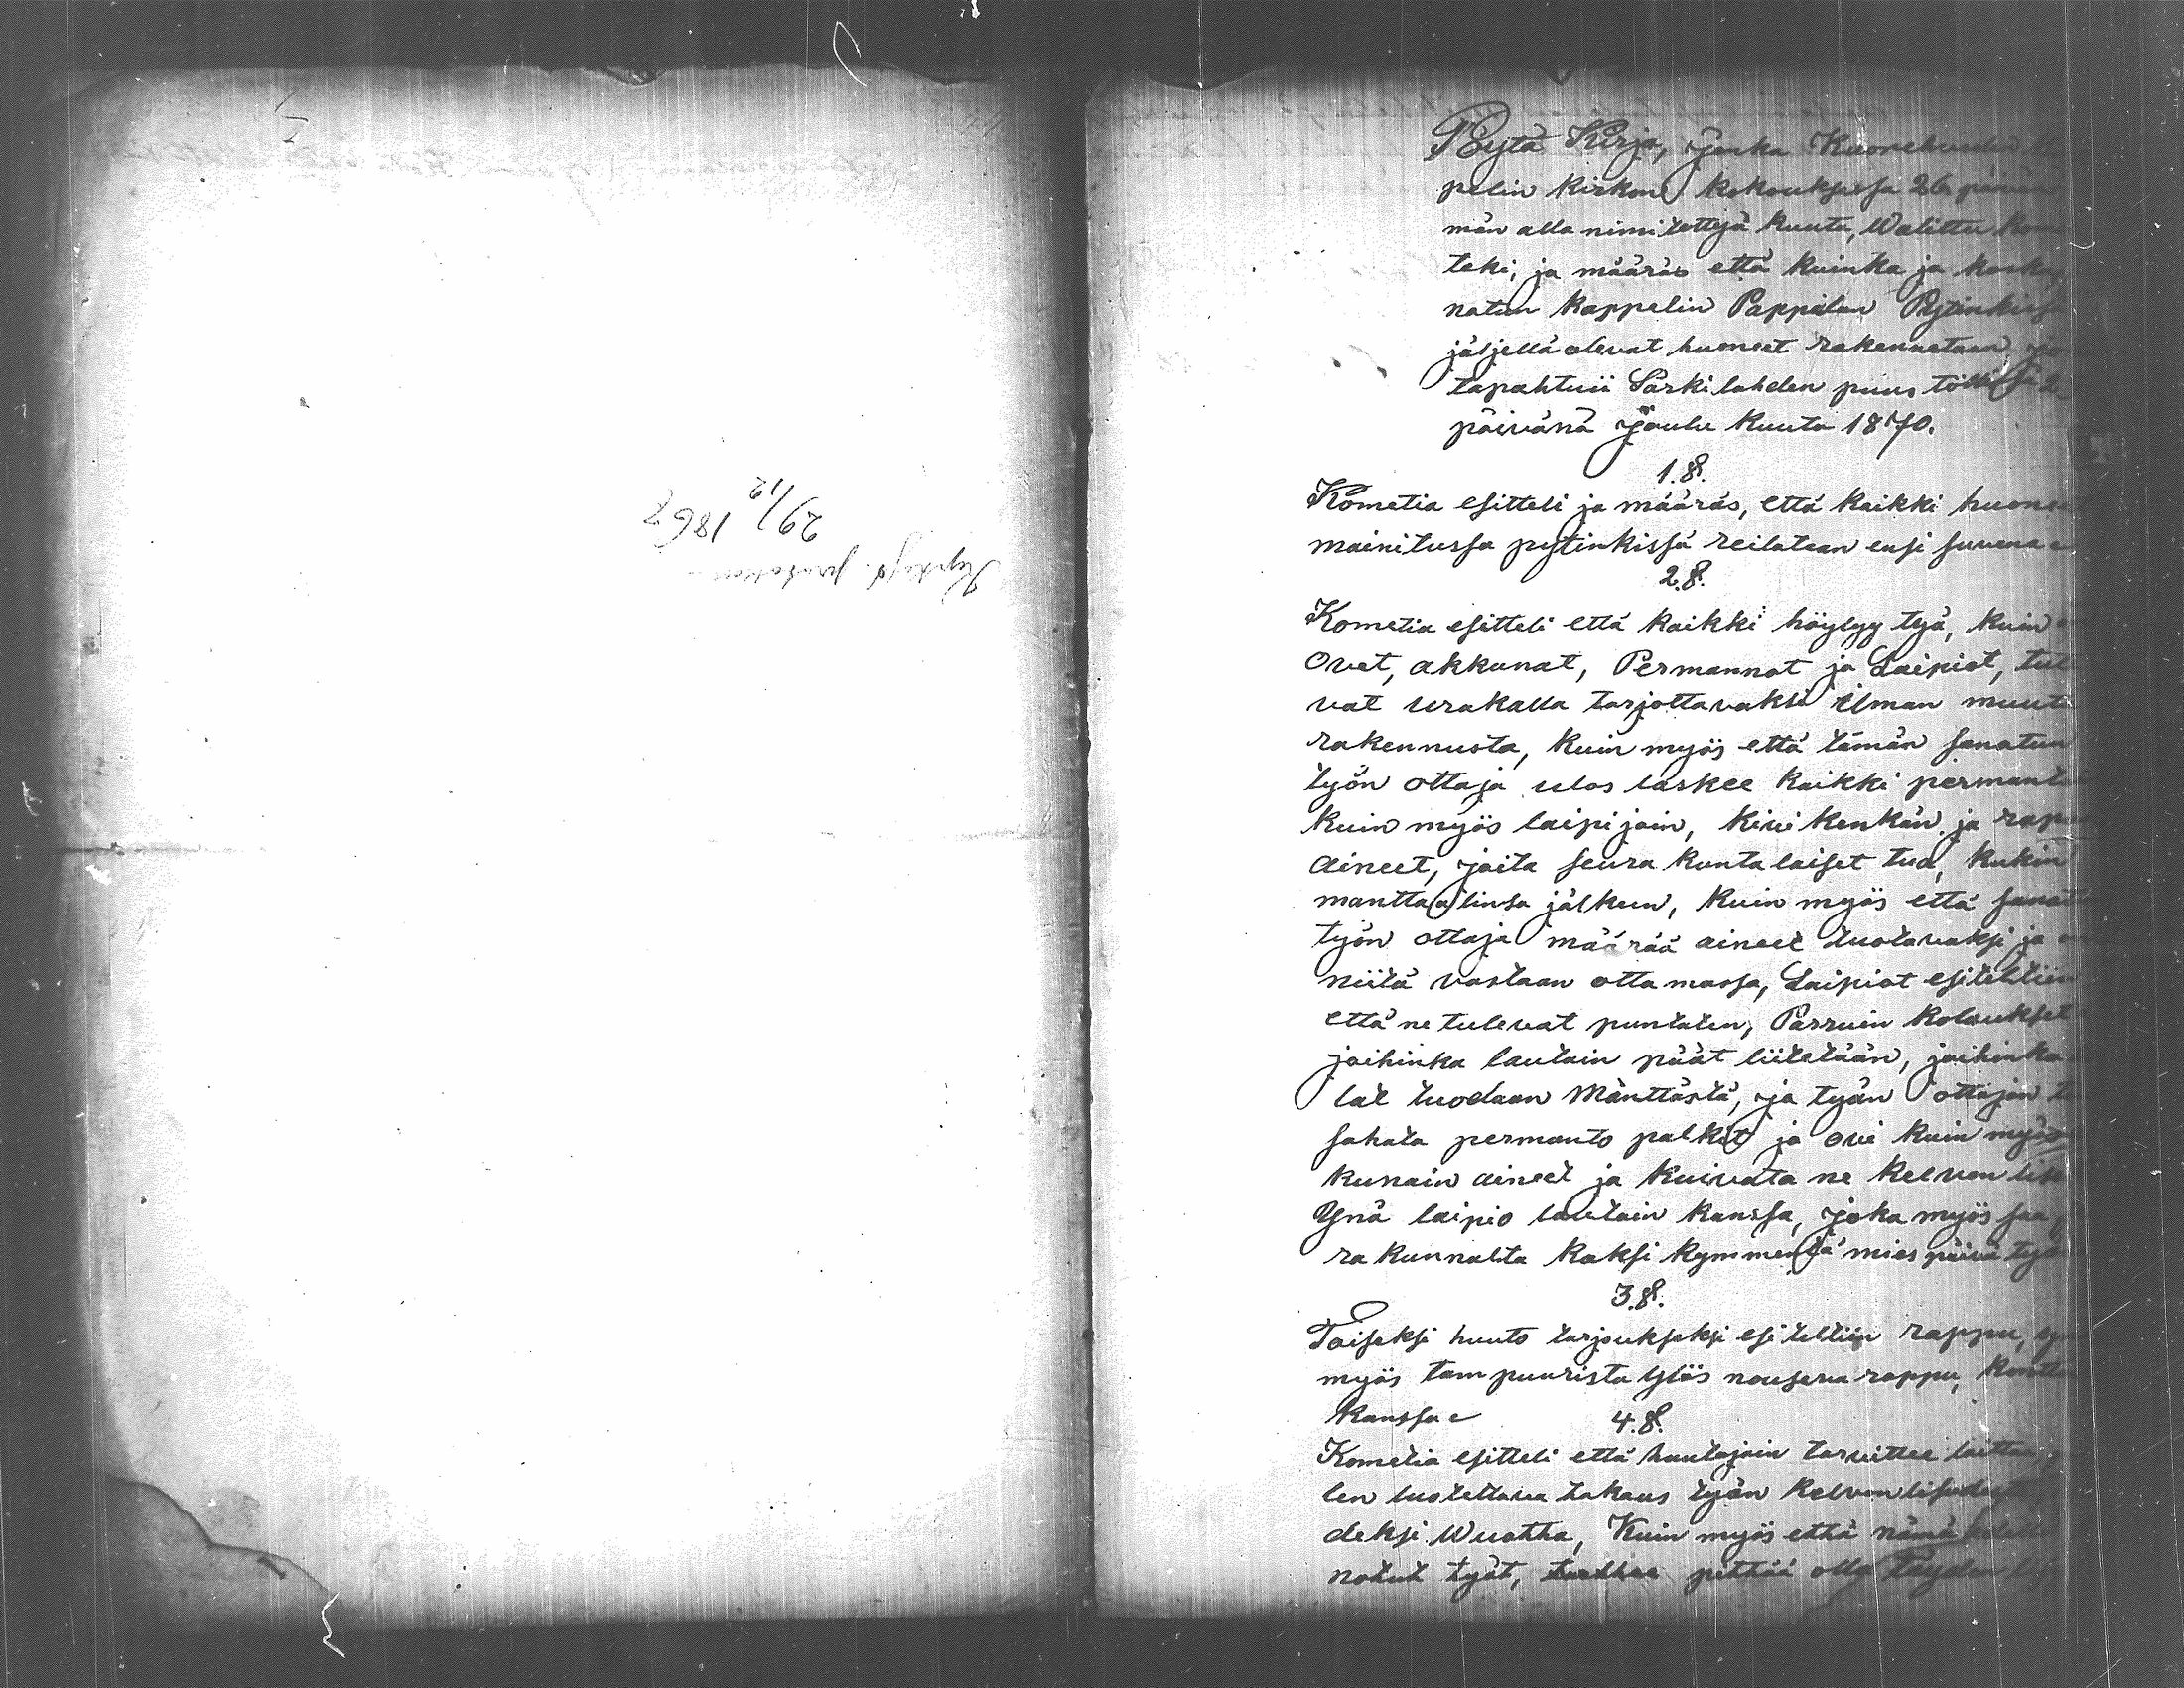 29/12 1868
Pöytä Kirja, jonka Kuoreh
pelin kirkon kokouksessa 26
män alla nimitettyä kuuta, Walittu Kom
teki, ja määräs että kuinka ja koska
natun kappelin Pappilan Pytinkis
jäljellä olevat huoneet rakennetaan
tapahtuii Särkilahden puustöllissä 2
päivänä Joulu kuuta 1870.
1.§.
Kometia esitteli ja määräs, että kaikki huone
mainitussa pytinkissä reilataan ensi suvena
2.§.
Kometia esitteli että kaikki höylyy työ, kuin
Ovet, akkunat, Permannot ja Laipiot, tul
vat urakalla tarjottavaksi ilman muuta
rakennusta, kuin myös että tämän sanatun
työn ottaja ulos laskee kaikki permant
kuin myös laipijoin, kivi kenkän ja rap
aineet, joita seura kuntalaiset tua, kukin
manttaalinsa jälkeen, kuin myös että sanat
työn ottaja määrää aineet tuotavaksi ja
niitä vastaan ottamassa, Laipiot esiteltiin
että ne tulevat puntaten, Parruin kolaukset
joihinka lautain päät liitetään, joihinka
lat tuodaan Mänttästä, ja työn ottajan
sahata permanto palkit ja ovi kuin myös
kunain aineet ja kuivata ne kelvon lis
Ynä laipio lautain kanssa, joka myös saa
rakunnalta kaksi kymmentä mies päivä työ
3.§.
Toiseksi huuto tarjoukseksi esiteltiin rappu,
myös tampuurista ylös nouseva rappu,
kanssa
4.§.
Kometia esitteli että huutajain tarvittee laitta
len luotettava takaus työn kelvon lisude
deksi Wuotta, Kuin myös että nämä
notut työt, pittää olla Täyde